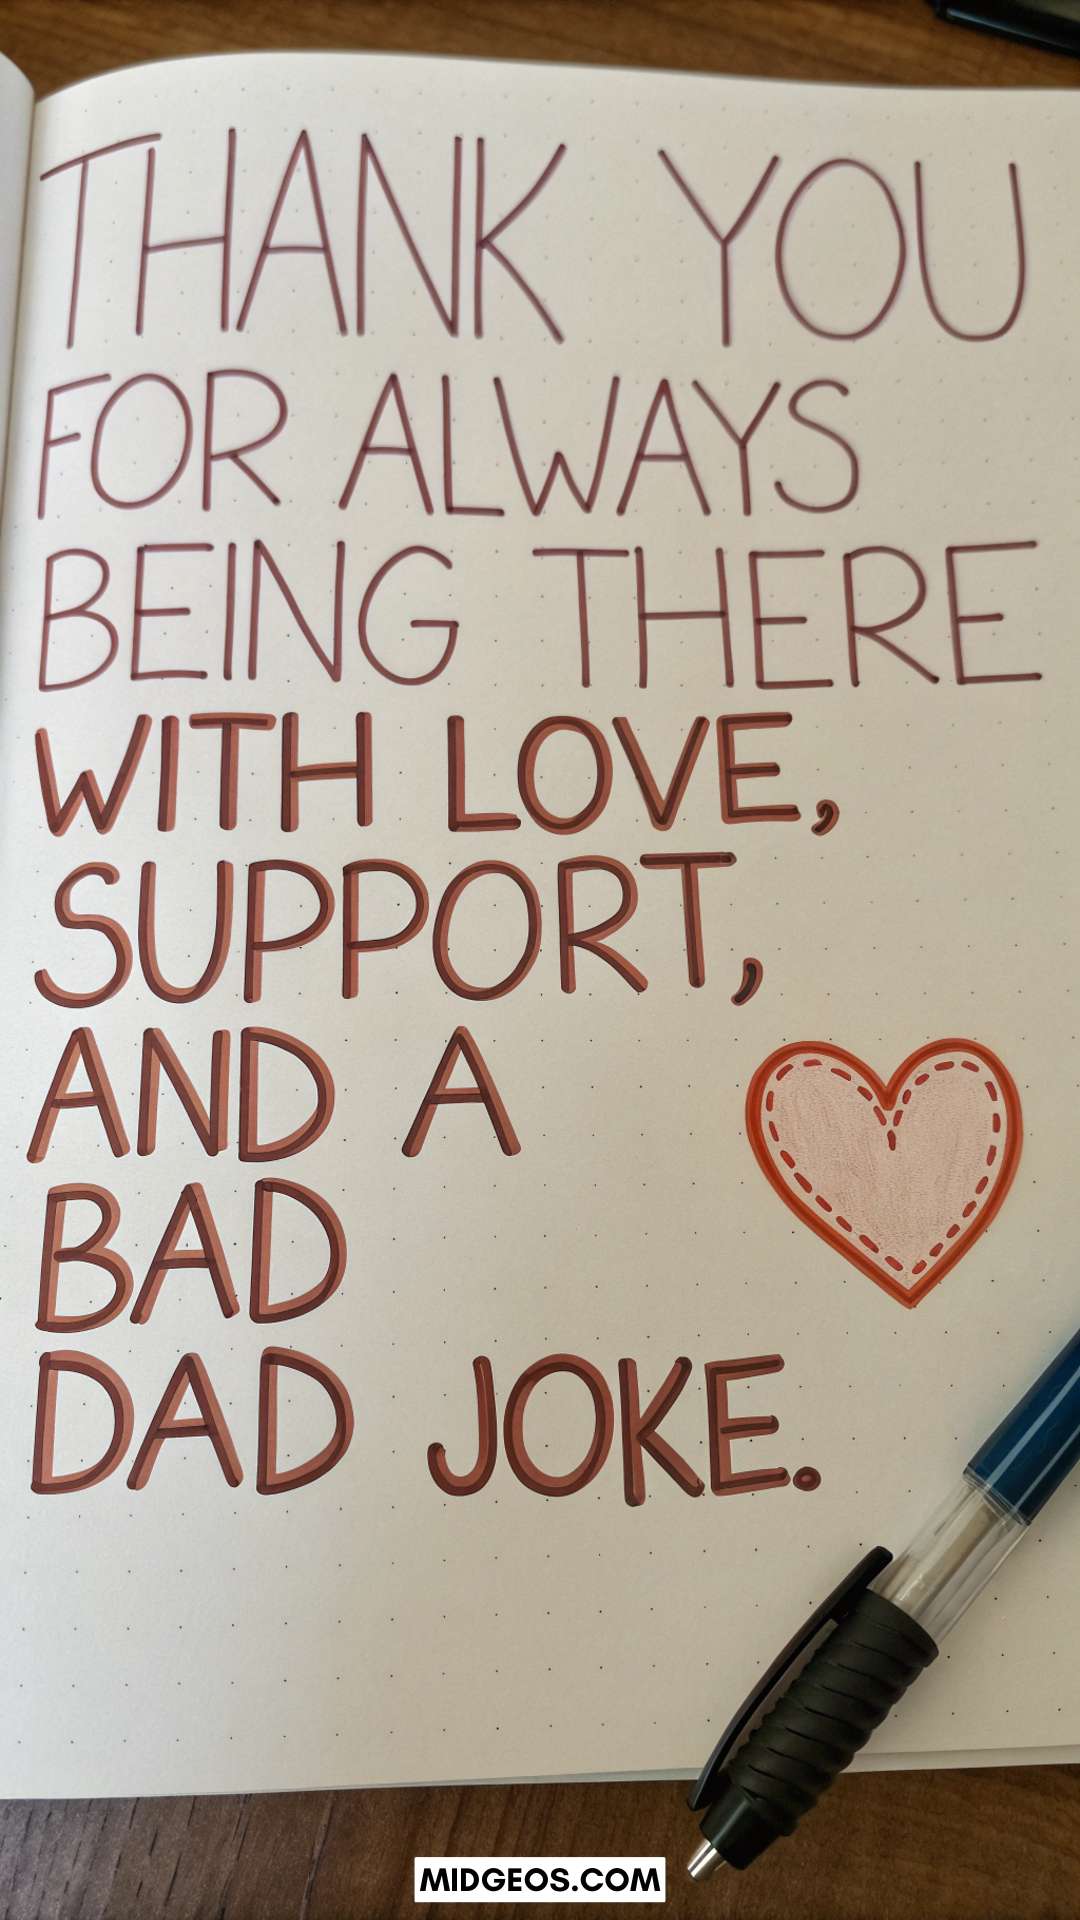 THANK YOU
FOR ALWAYS
BEING THERE
WITH LOVE,
SUPPORT,
AND A
BAD
DAD JOKE.
MIDGEOS.COM